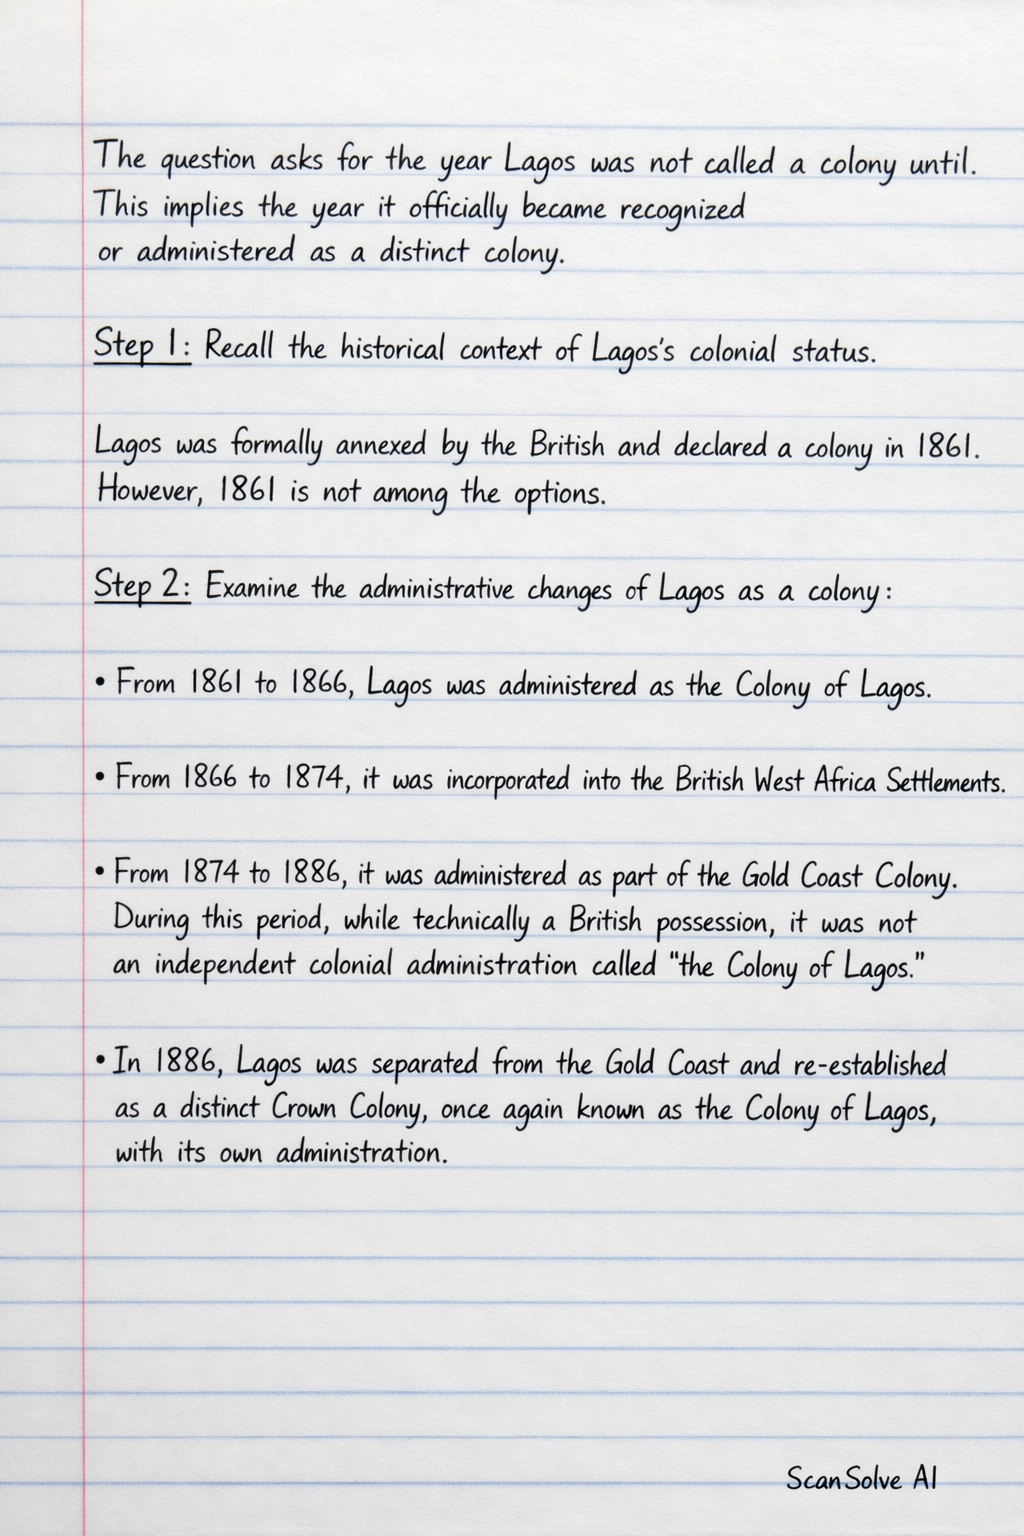 The question asks for the year Lagos was not called a colony until.
This implies the year it officially became recognized
or administered as a distinct colony.
Step 1: Recall the historical context of Lagos's colonial status.
Lagos was formally annexed by the British and declared a colony in 1861.
However, 1861 is not among the options.
Step 2: Examine the administrative changes of Lagos as a colony:
• From 1861 to 1866, Lagos was administered as the Colony of Lagos.
• From 1866 to 1874, it was incorporated into the British West Africa Settlements.
• From 1874 to 1886, it was administered as part of the Gold Coast Colony.
During this period, while technically a British possession, it was not
an independent colonial administration called "the Colony of Lagos."
• In 1886, Lagos was separated from the Gold Coast and re-established
as a distinct Crown Colony, once again known as the Colony of Lagos,
with its own administration.
ScanSolve AI